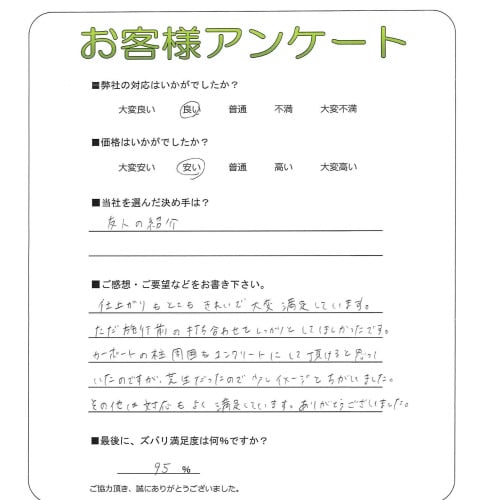 お客様アンケート
■弊社の対応はいかがでしたか？
大変良い　良い　普通　不満　大変不満
■価格はいかがでしたか？
大変安い　安い　普通　高い　大変高い
■当社を選んだ決め手は？
友人の紹介
■ご感想・ご要望などをお書き下さい。
仕上がりもとてもきれいで大変満足しています。
ただ施行前の打ち合わせをしっかりとしてほしかったです。
カーポートの柱周囲もコンクリートにして頂けると思って
いたのですが、芝生だったので少しイメージとちがいました。
その他は対応もよく満足しています。ありがとうございました。
■最後に、ズバリ満足度は何％ですか？
95 ％
ご協力頂き、誠にありがとうございました。